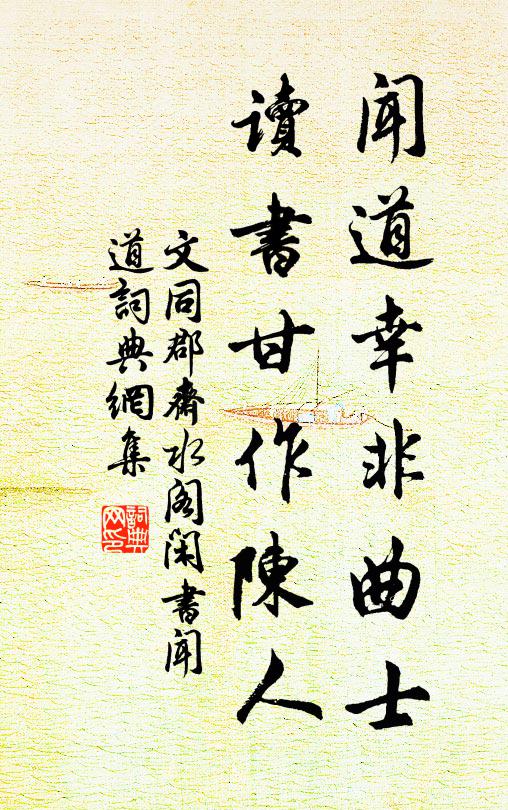 聞道幸非曲士
讀書甘作陳人
文同郡齋水閣閑書聞
道詞典網集
詞典
网印